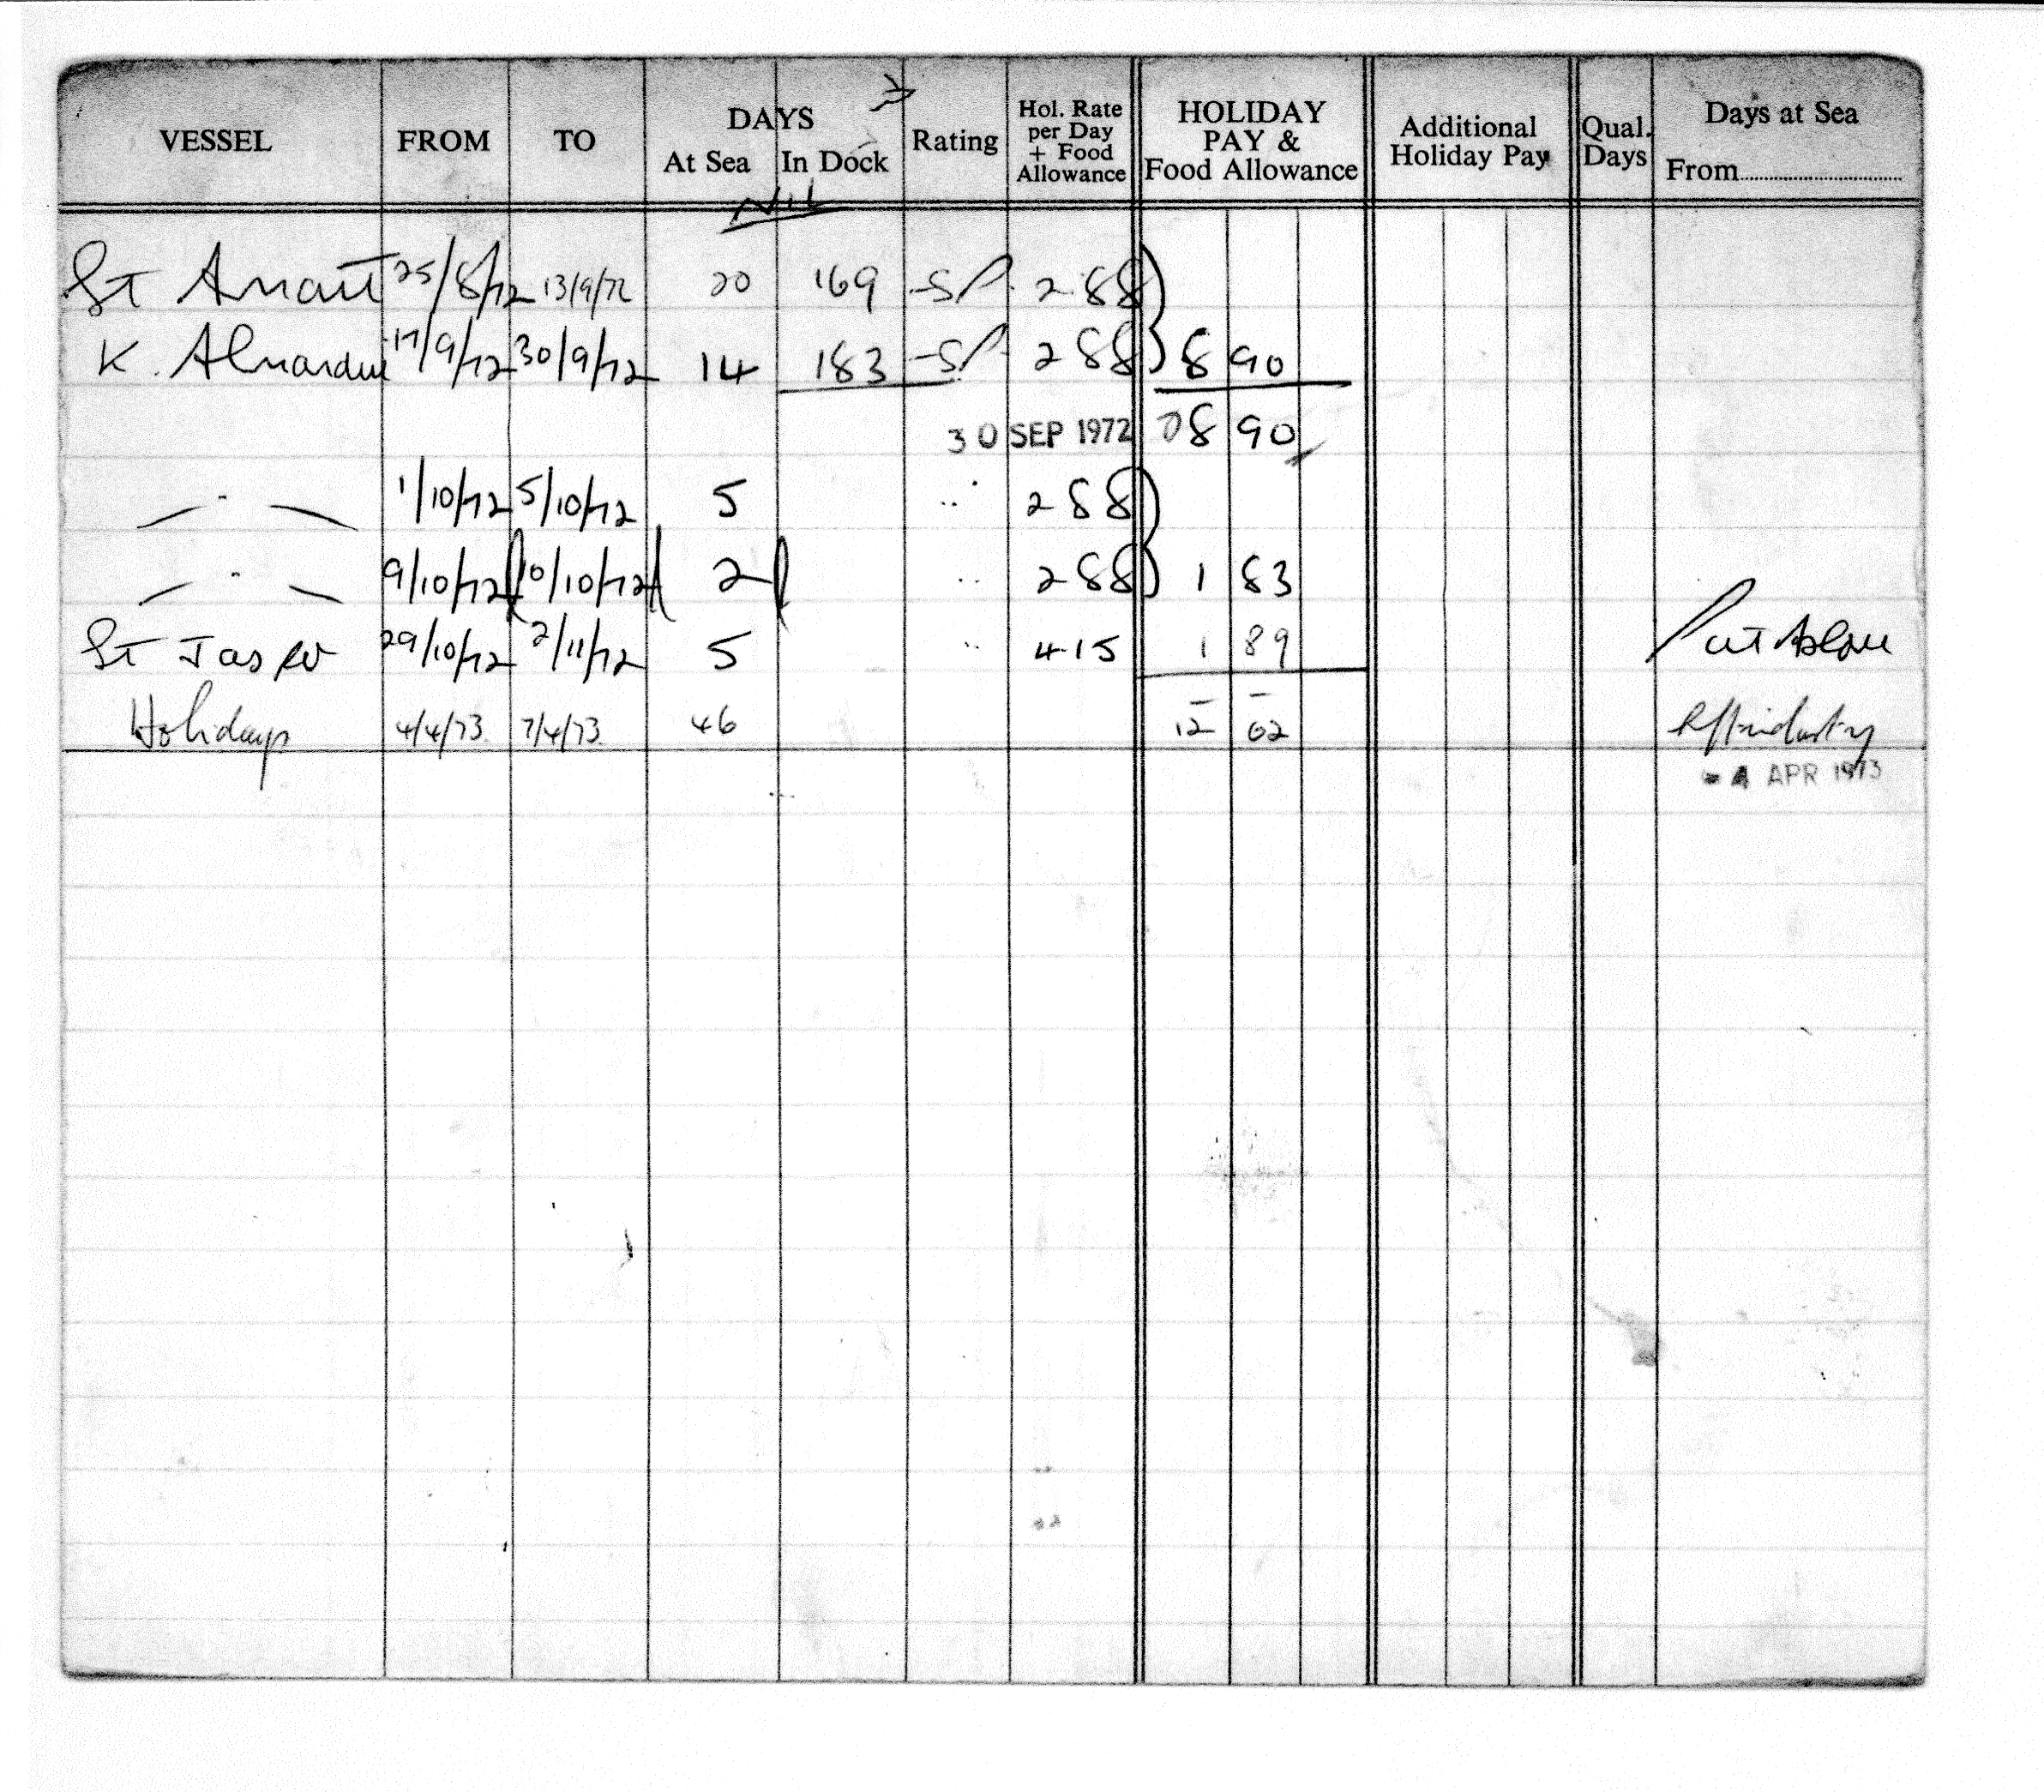 VESSEL FROM TO DAYS At Sea In Dock Rating Hol. Rate per Day + Food Allowance HOLIDAY PAY & Food Allowance Additional Holiday Pay Qual. Days Days at Sea From
Nil
St 25/8/72 13/9/72 20 169 SP 2 88
K. 17/9/72 30/9/72 14 183 SP 2 88 8 90
30 SEP 1972 8 90
1/10/72 5/10/72 5 2 88
9/10/72 10/10/72 2 2 88 1 83
St Jasper 29/10/72 2/11/72 5 4.15 1 89
Holidays 4/4/73 7/4/73 46 12 62
4 APR 1973